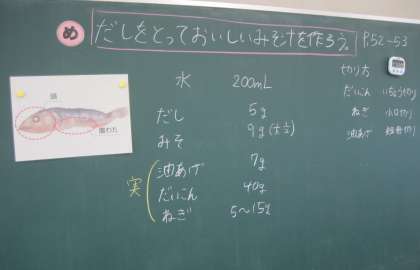 め だしをとっておいしいみそ汁を作ろう。 P.52-53
水 200mL
だし 5g
みそ 9g(大1/2)
実
油あげ 7g
だいこん 40g
ねぎ 5〜15g
切り方
だいこん いちょう切り
ねぎ 小口切り
油あげ 短冊切り
頭
腹わた